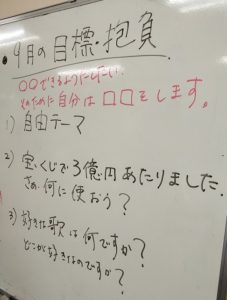 ・9月の目標・抱負
〇〇できるようにしたい。
そのために自分は□□をします。
1) 自由テーマ
2) 宝くじで3億円あたりました。
さぁ、何に使おう?
3) 好きな歌は何ですか?
どこが好きなのですか?